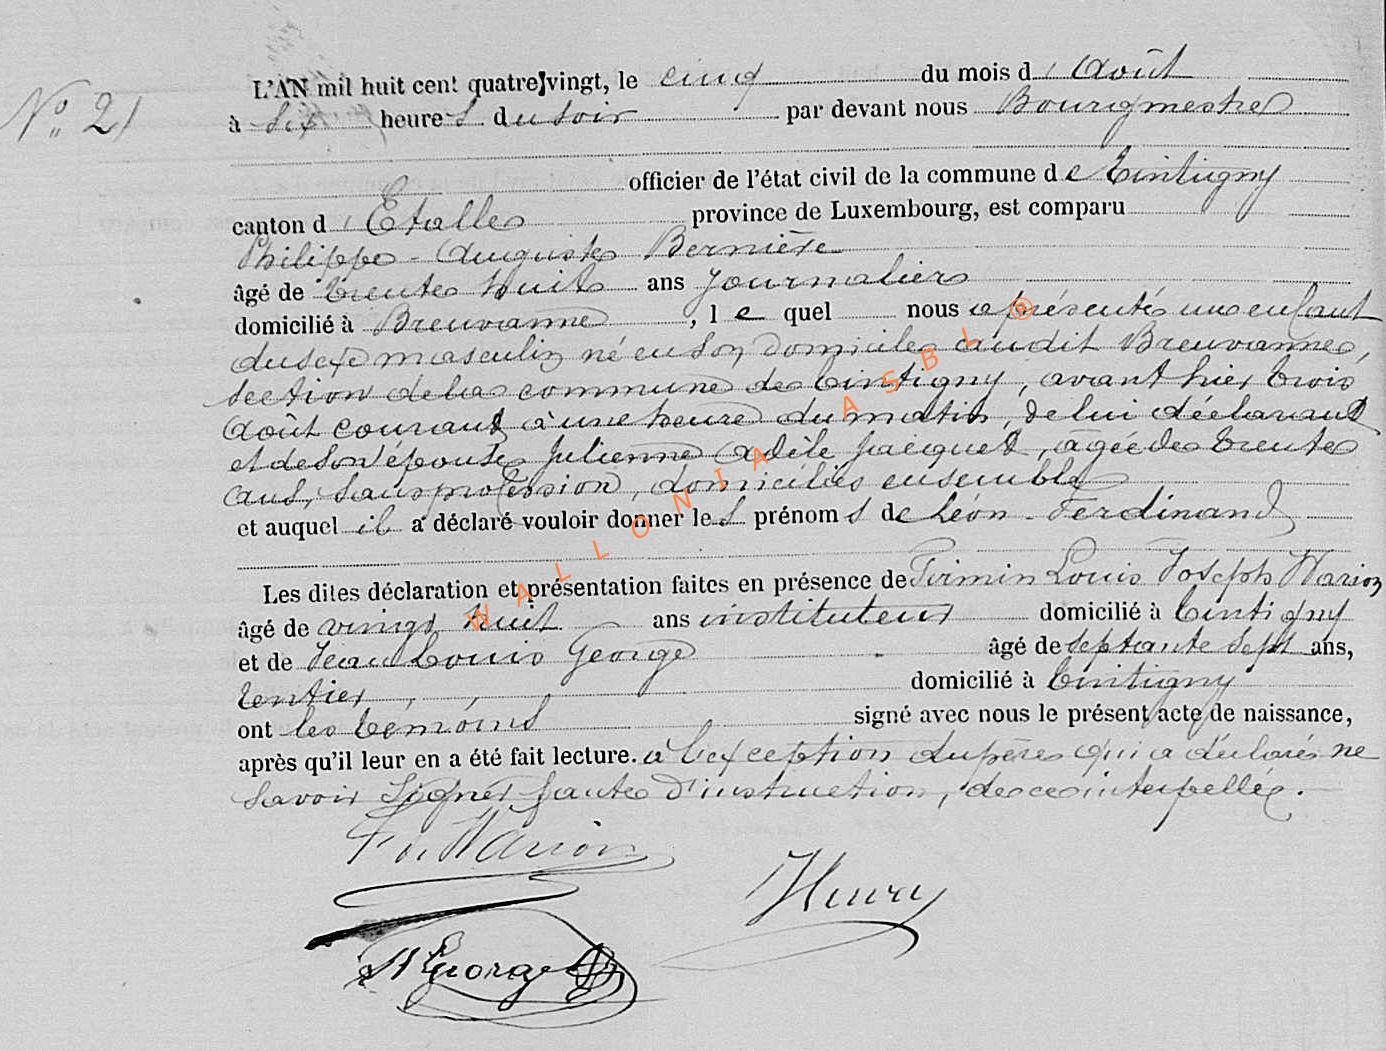 N° 21
L'AN mil huit cent quatre-vingt, le cinq du mois d'Août
à six heures du soir par devant nous Bourgmestre
officier de l'état civil de la commune de Tintigny
canton d'Etalle province de Luxembourg, est comparu
Philippe-Auguste Bernière
âgé de trente huit ans Journalier
domicilié à Breuvanne, lequel nous a présenté un enfant
du sexe masculin né en son domicile audit Breuvanne,
section de la commune de Tintigny, avant hier trois
Août courant à une heure du matin, de lui déclarant
et de son épouse Julienne Adèle Jacquet, âgée de trente
ans, sans profession, domiciliés ensemble
et auquel il a déclaré vouloir donner les prénoms de Léon-Ferdinand
Les dites déclaration et présentation faites en présence de Firmin Louis Joseph Warion
âgé de vingt huit ans instituteur domicilié à Tintigny
et de Jean Louis George âgé de septante sept ans,
rentier, domicilié à Tintigny
ont les témoins signé avec nous le présent acte de naissance,
après qu'il leur en a été fait lecture. à l'exception du père qui a déclaré ne
savoir signer faute d'instruction, de ce interpellé.
Warion
Henry
George
WALLONIA ASBL @